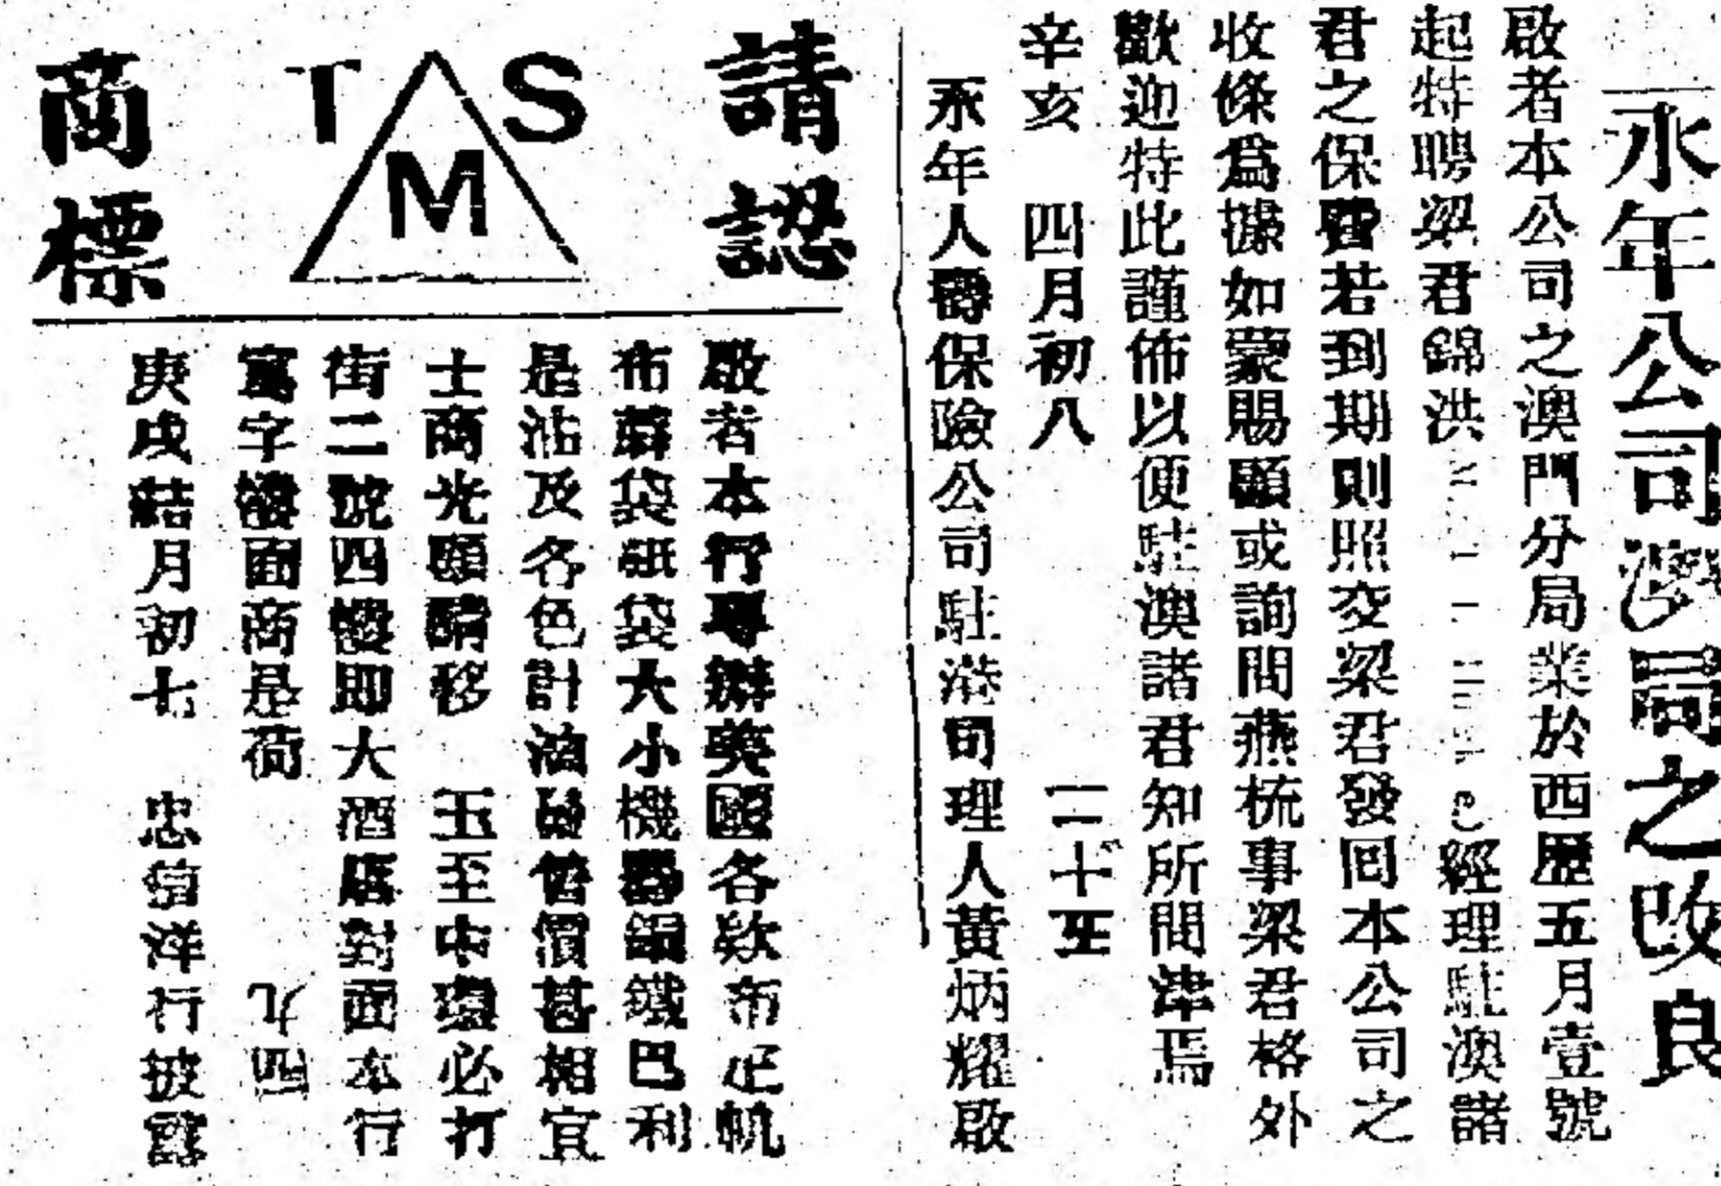 永年公司澳局之改良
啟者本公司之澳門分局業於西歷五月壹號
起特聘梁君錦洪 經理駐澳諸
君之保費若到期則照交梁君發囘本公司之
收條爲據如蒙賜顧或詢問燕梳事梁君格外
歡迎特此謹佈以便駐澳諸君知所問津焉
辛亥 四月初八 一二十五
永年人壽保險公司駐港司理人黃炳耀啟
請認
T S M
商標
啟者本行專辦英國各欵布疋帆
布蔴袋紙袋大小機器鋼鐵巴利
是油及各色計油 價甚相宜
士商光顧請移 玉至中環必打
街二號四樓即大酒店對面本行
寫字樓面商是荷 九四
庚戌結月初七 忠信洋行披露